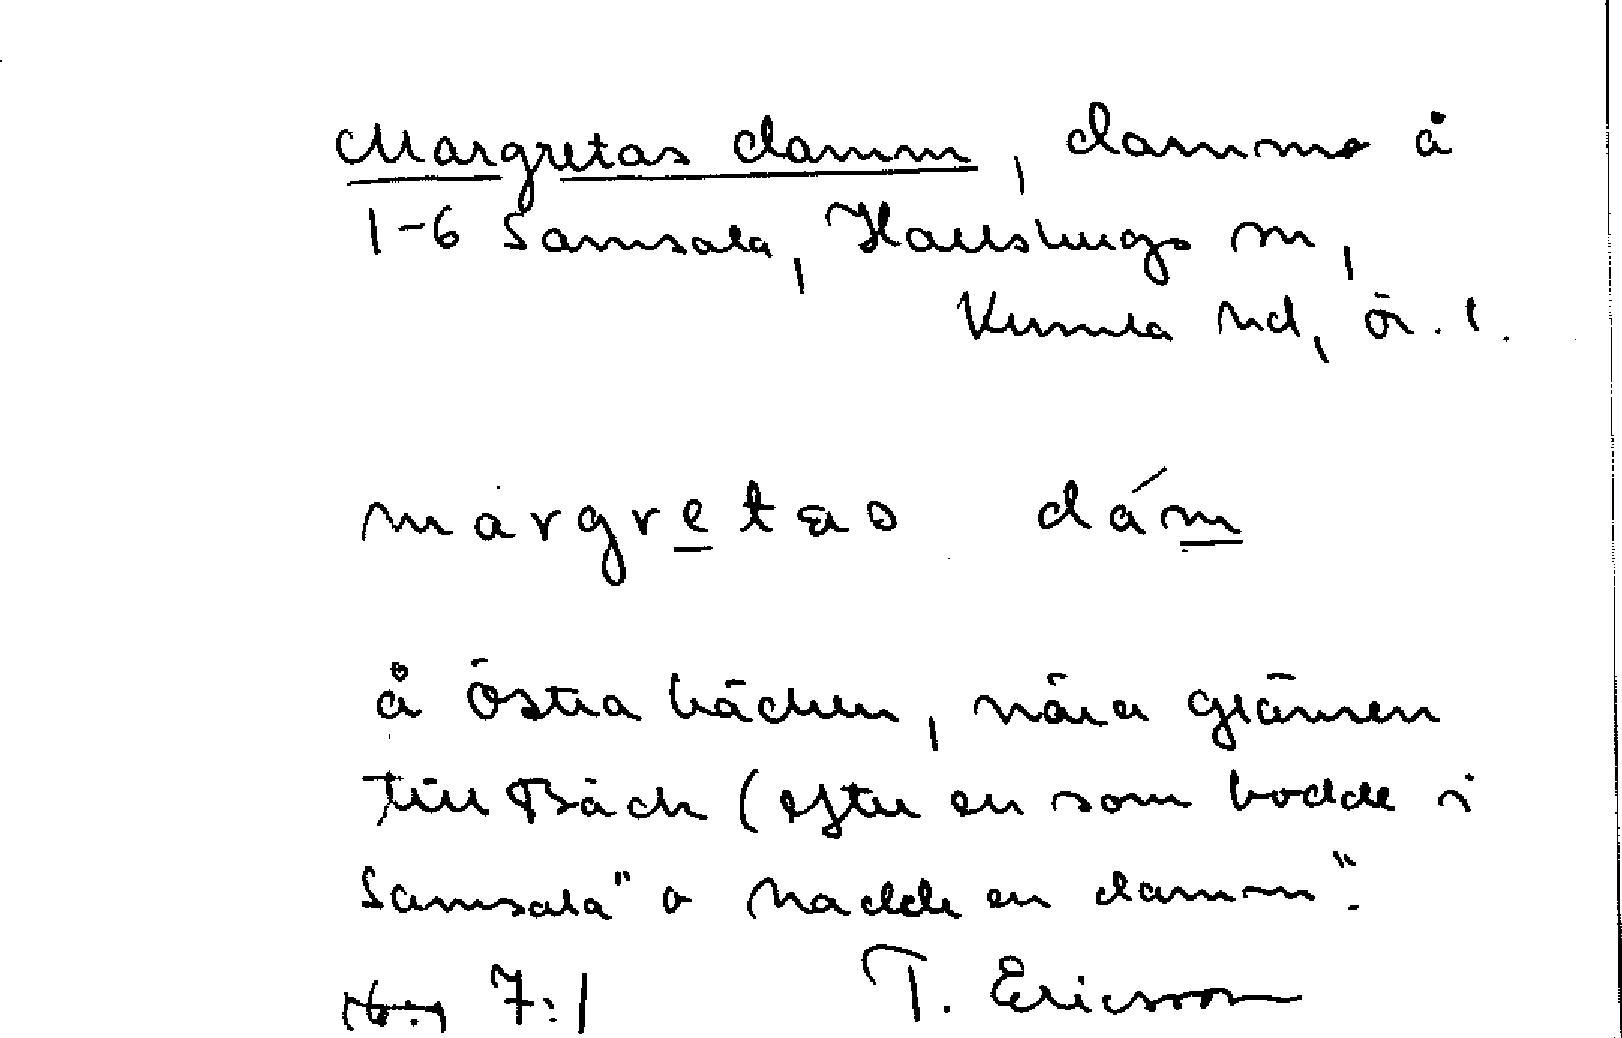 Margretas damm, damm å
1-6 Samsala, Hallsbergs sn,
Kumla hd, ör. l.
margretas dám
å östra bäcken, nära gränsen
till Bäck (efter en som bodde i
Samsala" o hadde en damm".
7:1 T. Ericsson